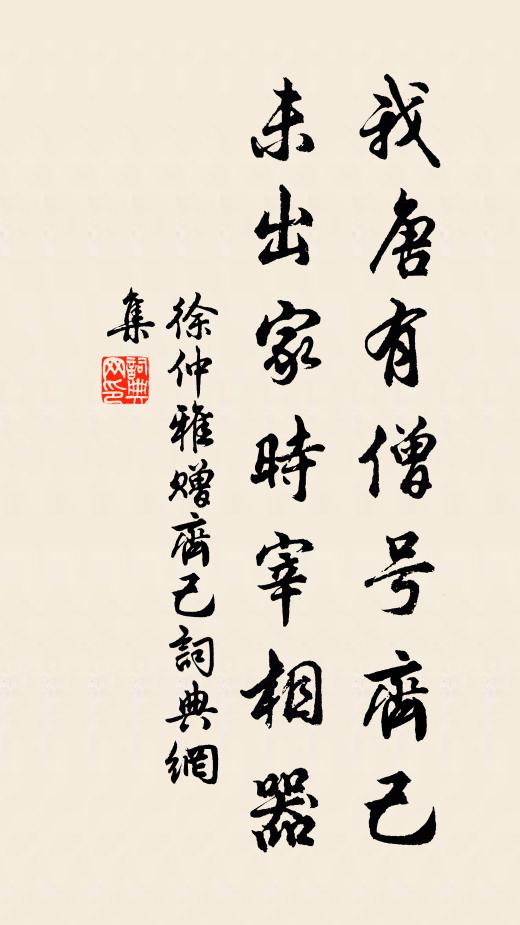 我唐有僧号齊己
未出家時宰相器
徐仲雅赠齊己詞典網
集
詞典
网印